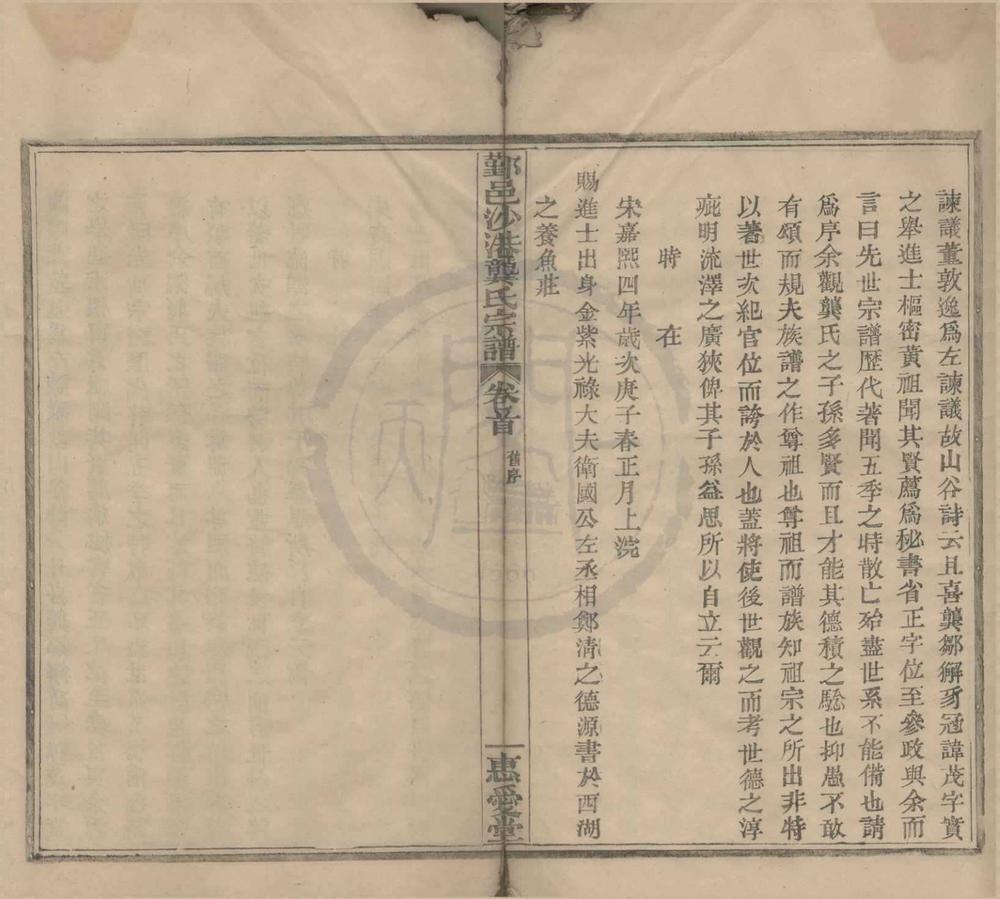 諫議董敦逸爲左諫議故山谷詩云且喜龔鄒獬豸冠諱茂字實
之舉進士樞密黃祖聞其賢薦爲秘書省正字位至參政與余而
言曰先世宗譜歷代著聞五季之時散亡殆盡世系不能備也請
爲序余觀龔氏之子孫多賢而且才能其德積之驗也抑愚不敢
有頌而規夫族譜之作尊祖也尊祖而譜族知祖宗之所出非特
以著世次紀官位而誇於人也蓋將使後世觀之而考世德之淳
疵明流澤之廣狹俾其子孫益思所以自立云爾
時在
宋嘉熙四年歲次庚子春正月上浣
賜進士出身金紫光祿大夫衛國公左丞相鄭清之德源書於西湖
之養魚莊
鄞邑沙港龔氏宗譜 卷首 舊序 一 惠愛堂